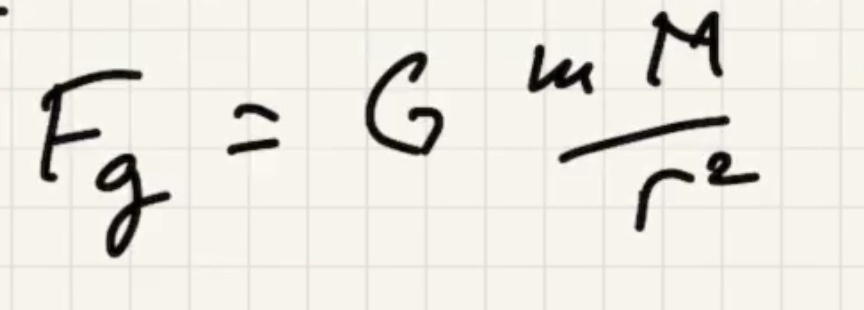 F_g = G \frac{m M}{r^2}